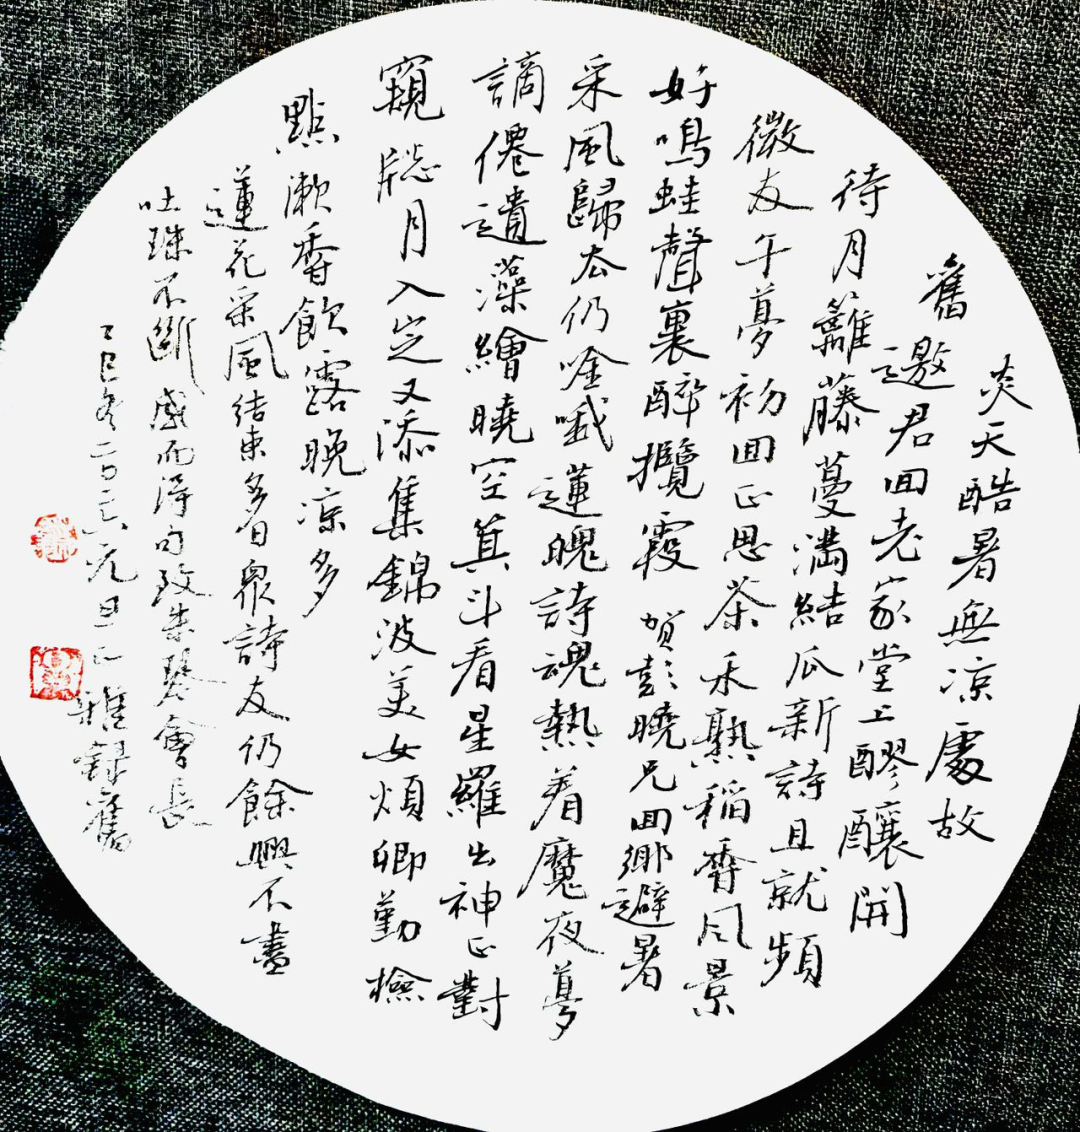 炎天酷暑無凉處故
舊邀君回老家堂上醪釀開
待月籬藤蔓満結瓜新詩且就頻
微友午夢初回正思茶禾熟稻香风景
好鳴蛙聲裏醉攬霞 贺彭曉兄回鄉避暑
采風歸去仍唫哦蓮魄詩魂熱着魔夜夢
謫僊遺藻繪曉空箕斗看星羅出神正對
窺牕月入定又添集錦波美女煩卿勤檢
點漱香飲露晚凉多
蓮花采風结束多日衆詩友仍餘興不盡
吐珠不斷感而得句致朱琴會長
乙巳冬二〇二六元旦正雅録舊